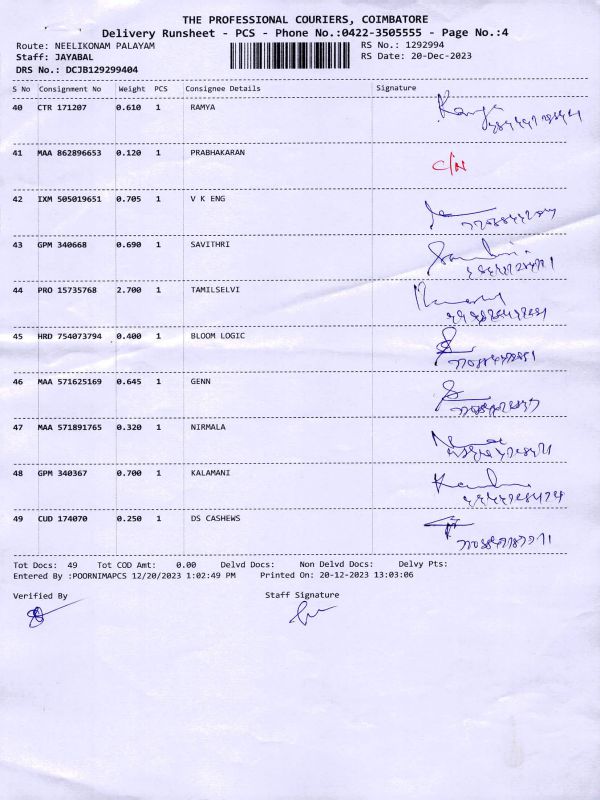 THE PROFESSIONAL COURIERS, COIMBATORE
Delivery Runsheet - PCS - Phone No.:0422-3505555 - Page No.:4
Route: NEELIKONAM PALAYAM RS No.: 1292994
Staff: JAYABAL RS Date: 20-Dec-2023
DRS No.: DCJB129299404
S No Consignment No Weight PCS Consignee Details Signature
40 CTR 171207 0.610 1 RAMYA Ramya
41 MAA 862896653 0.120 1 PRABHAKARAN C/N
42 IXM 505019651 0.705 1 V K ENG
43 GPM 340668 0.690 1 SAVITHRI
44 PRO 15735768 2.700 1 TAMILSELVI
45 HRD 754073794 0.400 1 BLOOM LOGIC
46 MAA 571625169 0.645 1 GENN
47 MAA 571891765 0.320 1 NIRMALA
48 GPM 340367 0.700 1 KALAMANI
49 CUD 174070 0.250 1 DS CASHEWS
Tot Docs: 49 Tot COD Amt: 0.00 Delvd Docs: Non Delvd Docs: Delvy Pts:
Entered By :POORNIMAPCS 12/20/2023 1:02:49 PM Printed On: 20-12-2023 13:03:06
Verified By Staff Signature